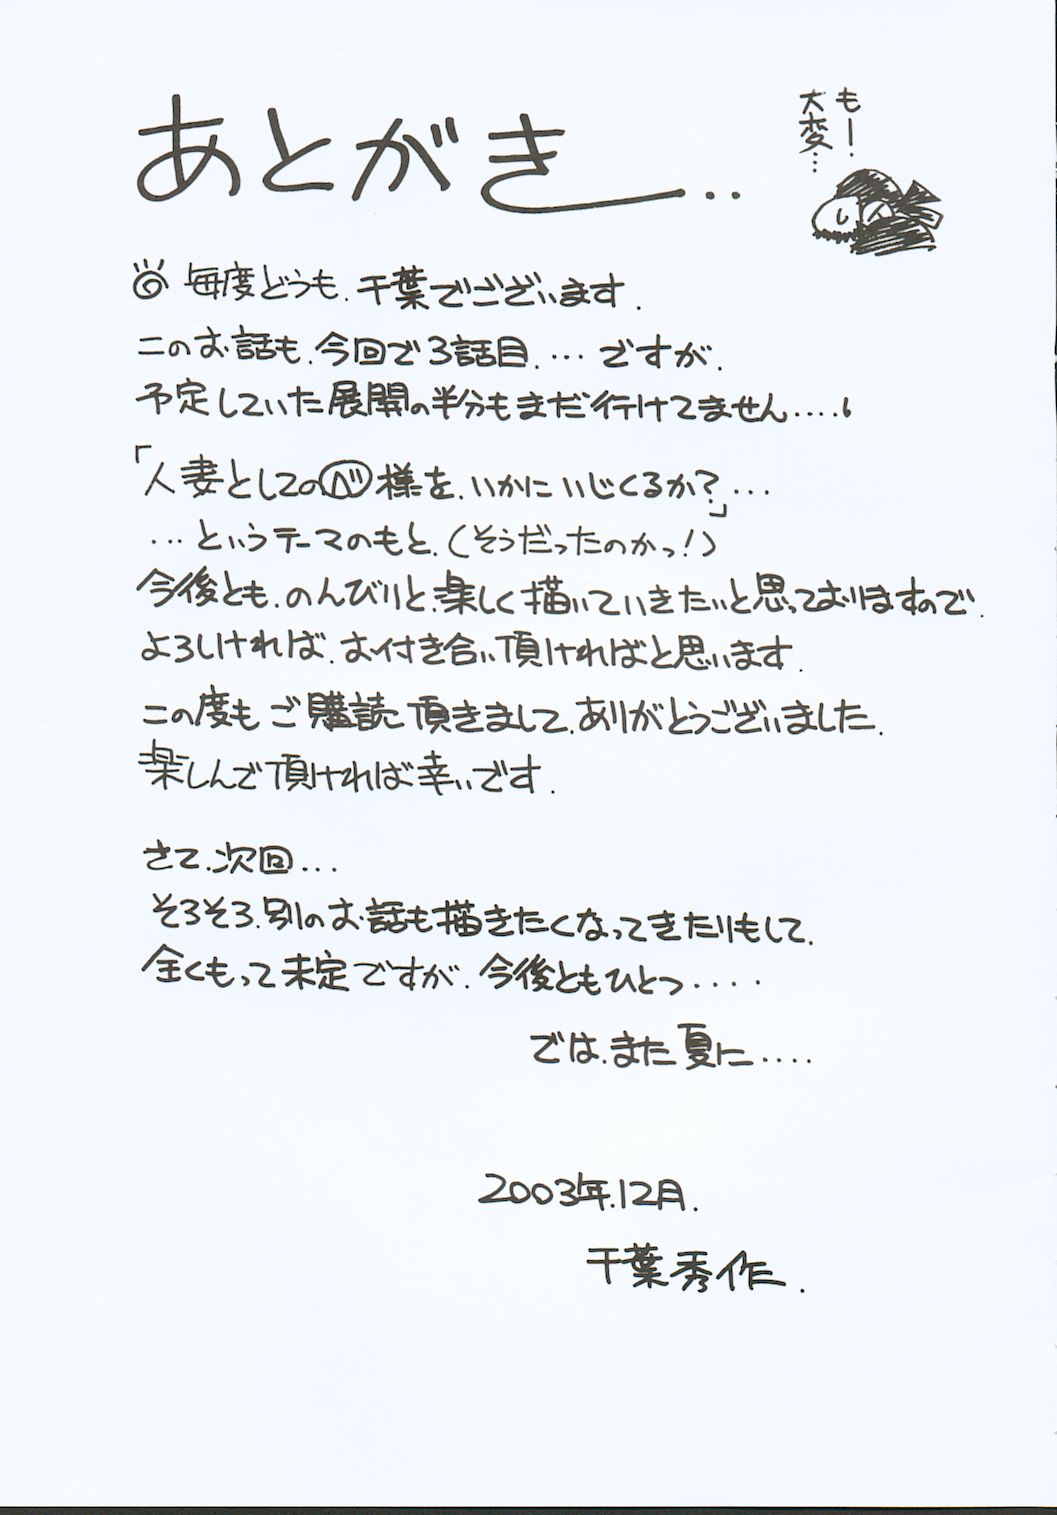 あとがき...
もー!
大変...
◎毎度どうも、千葉でございます.
このお話も、今回で3話目、…ですが、
予定していた展開の半分もまだ行けてません....
「人妻としてのベ様を、いかにいじくるか?…」
…というテーマのもと、(そうだったのかっ!)
今後とも、のんびりと、楽しく描いていきたいと思っておりますので、
よろしければ、お付き合い頂ければと思います.
この度もご購読頂きまして、ありがとうございました.
楽しんで頂ければ幸いです.
さて、次回...
そろそろ、別のお話も描きたくなってきたりもして、
全くもって未定ですが、今後ともひとつ....
では、また夏に....
2003年.12月.
千葉秀作.